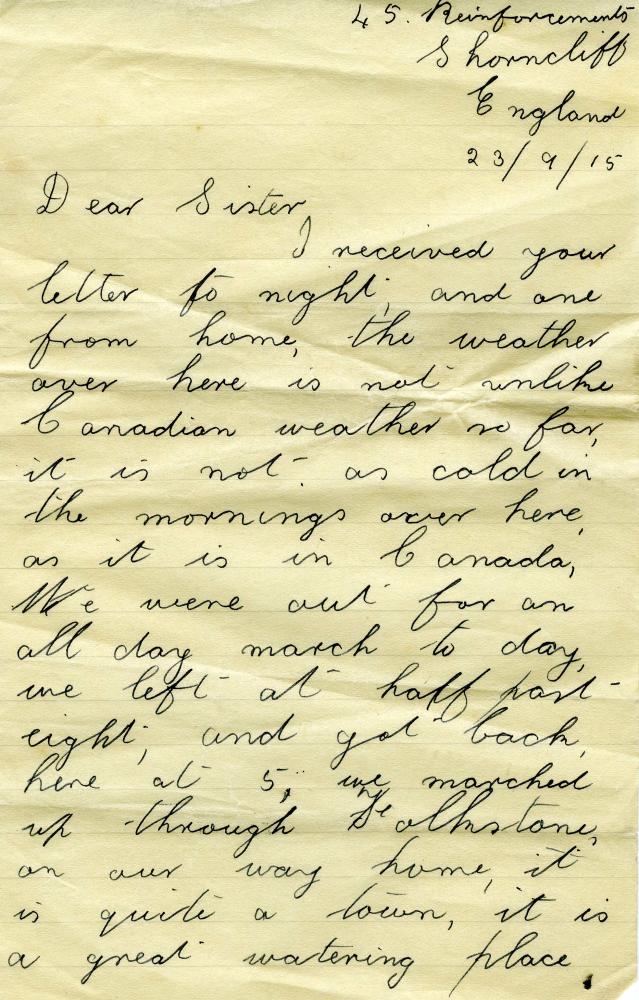 45. Reinforcements
Shorncliff
England
23/9/15
Dear Sister,
I received your
letter to night, and one
from home, the weather
over here is not unlike
Canadian weather so far,
it is not as cold in
the mornings over here,
as it is in Canada,
We were out for an
all day march to day,
we left at half past
eight, and got back,
here at 5, we marched
up through Folkstone,
on our way home, it
is quite a town, it is
a great watering place